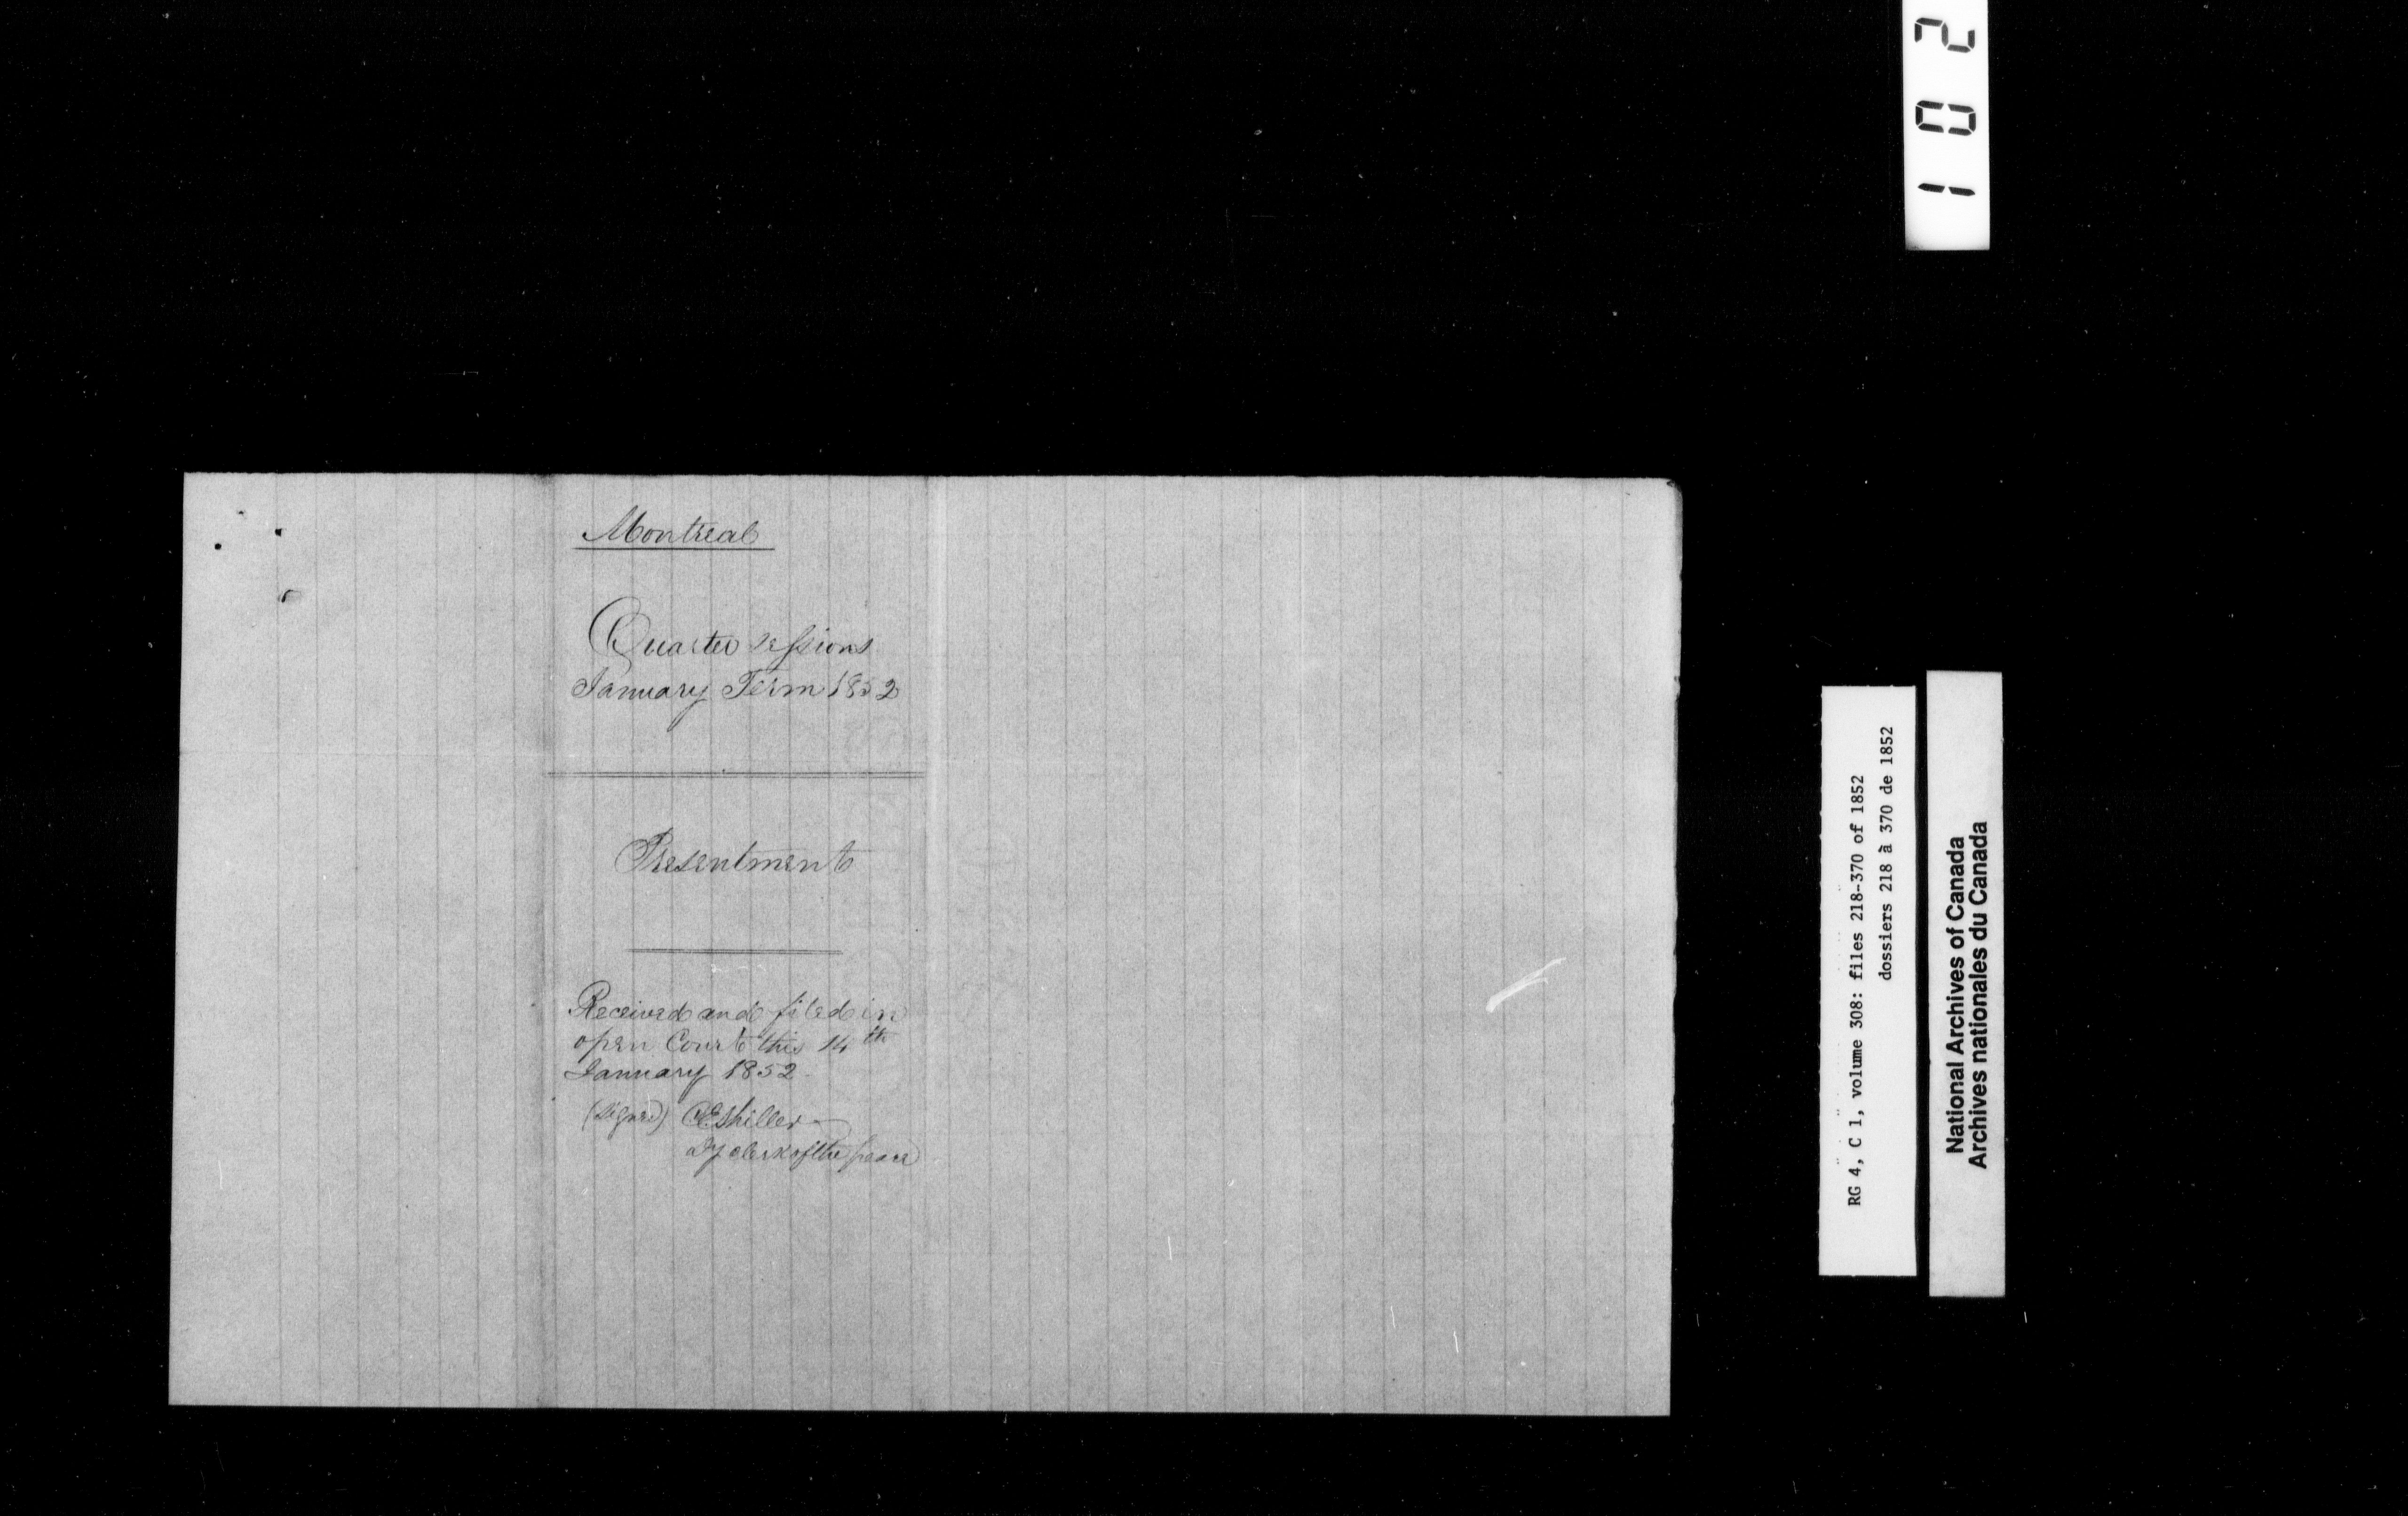 Montreal
Quarter sessions
January Term 1852
Presentment
Received and filed in
open Court this 14th
January 1852.
(Signed) CEShiller
Dy clerk of the peace
102
RG 4, C 1, volume 308: files 218-370 of 1852
dossiers 218 à 370 de 1852
National Archives of Canada
Archives nationales du Canada